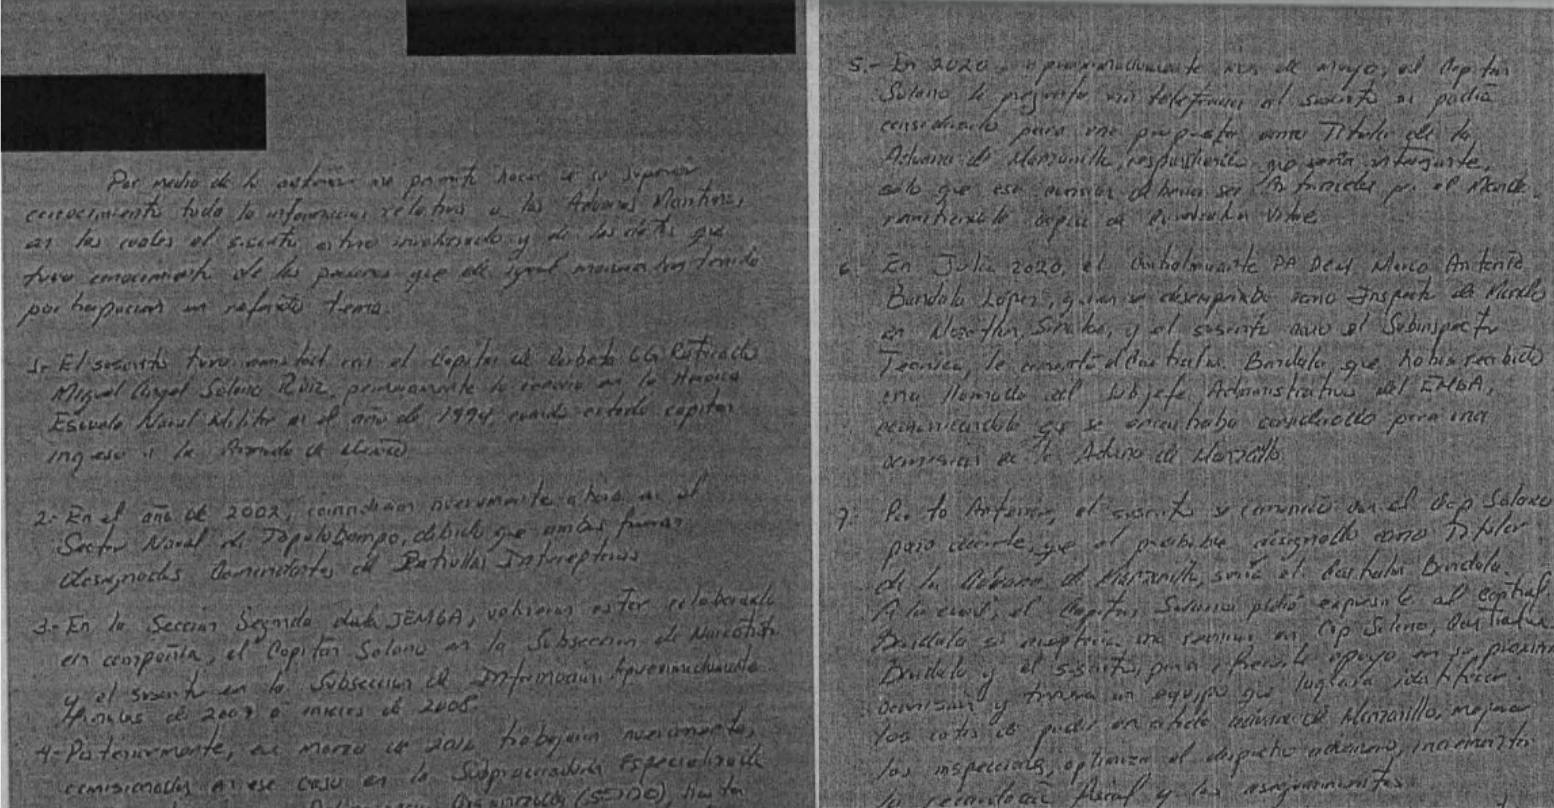 Por medio de la anterior me permito hacer de su superior
conocimiento toda la información relativa a las Aduanas Marítimas,
en las cuales el suscrito estuvo involucrado y de los datos que
tuvo conocimiento de las personas que de igual manera han tenido
participación en referido tema.
1.- El suscrito tuvo contacto con el Capitán de Corbeta CG. Retirado
Miguel Angel Solano Ruiz, primeramente lo conocio en la Heroica
Escuela Naval Militar en el año de 1994, cuando citado capitan
ingreso a la Armada de México
2.- En el año de 2002, coincidieron nuevamente ahora en el
Sector Naval de Topolobampo, debido que ambos fueron
designados Comandantes de Patrullas Interceptoras
3.- En la Sección Segunda del JEMGA, volvieron estar colaborando
en compañia, el Capitan Solano en la Subsección de Narcotrafico
y el suscrito en la Subsección de Información. Aproximadamente
finales de 2007 o inicios de 2008.
4.- Posteriormente, en marzo de 2016 trabajaron nuevamente,
comisionados en ese caso en la Subprocuraduria Especializada
Organizada (SEIDO), hasta
5.- En 2020, aproximadamente mes de mayo, el Capitan
Solano le pregunto via telefonica al suscrito si podia
considerarlo para una propuesta como Titular de la
Aduana de Manzanillo, respondiendole no seria integrante,
solo que esa comision deberia ser por el Mando.
remitiendole copia de Curriculum Vitae
6. En Julio 2020, el Contralmirante DA DEM Marco Antonio
Bandala López, quien se desempeñaba como Inspector de
en Mazatlan, Sinaloa, y el suscrito como el Subinspector
Tecnico, le comentó el Contralm. Bandala, que habia recibido
una llamada del Subjefe Administrativo del EMGA,
comunicandole que se encontraba considerado para una
comision en la Aduana de Manzanillo
7. Por lo Anterior, el suscrito se comunico con el Cap Solano
para decirle, que el probable designado como Titular
de la Aduana de Manzanillo, seria el Contralm Bandala.
A lo cual, el Capitan Solano pidió expresarle al
Bandala si aceptaria una reunion en, Cap Solano, Contralm.
Bandala y el suscrito, para ofrecerle apoyo en su proxima
comision y tuviera un equipo que lograra identificar
los cotos de poder en citada aduana de Manzanillo, mejorar
las inspecciones, optimizar el despacho aduanero, incrementar
la recaudación fiscal y los aseguramientos.